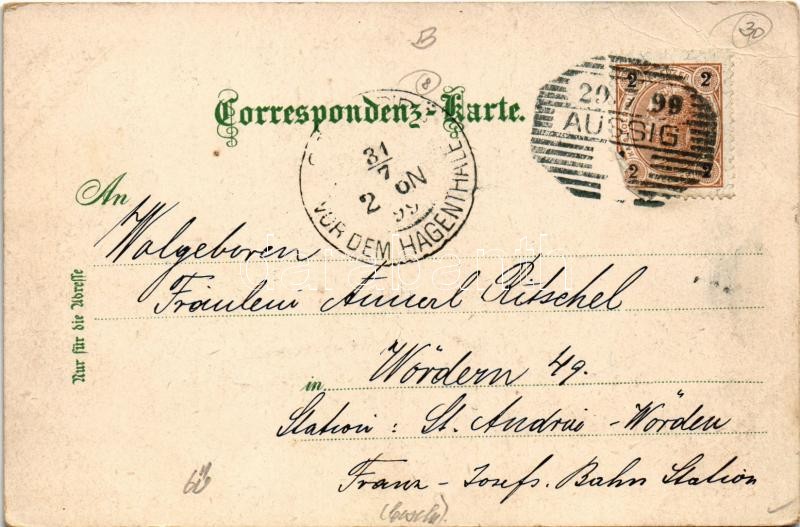 B
30
8
Correspondenz-Karte.
2 2
29. 7 99
AUSSIG
2 2
31/7
2 6N
99
VOR DEM HAGENTHALE
An
Wolgeboren
Fräulein Annerl Ritschel
Nur für die Adresse
in Wördern 49.
Station: St. Andrä-Wördern
Franz-Josefs. Bahn Station
darabanth